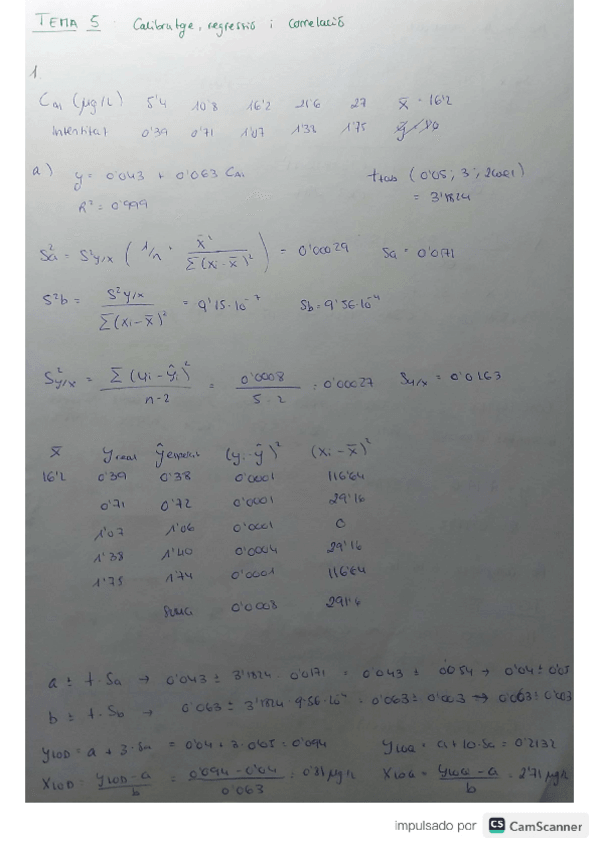 TEMA 5 Calibratge, regressió i correlació
1.
C_Al (µg/L) 5'4 10'8 16'2 21'6 27 x̄ = 16'2
Intensitat 0'39 0'71 1'07 1'38 1'75
a) y = 0'043 + 0'063 C_Al t_tab (0'05; 3; 2 cues)
R² = 0'999 = 3'1824
S²a = S²y/x (1/n + x̄² / Σ(xi - x̄)²) = 0'00029 Sa = 0'0171
S²b = S²y/x / Σ(xi - x̄)² = 9'15·10⁻⁷ Sb = 9'56·10⁻⁴
S²y/x = Σ(yi - ŷi)² / n-2 = 0'0008 / 5-2 = 0'00027 Sy/x = 0'0163
x̄ y real ŷ (yi - ŷ)² (xi - x̄)²
16'2 0'39 0'38 0'0001 116'64
0'71 0'72 0'0001 29'16
1'07 1'06 0'0001 0
1'38 1'40 0'0004 29'16
1'75 1'74 0'0001 116'64
SUMA 0'0008 291'6
a ± t·Sa → 0'043 ± 3'1824 · 0'0171 = 0'043 ± 0'054 → 0'04 ± 0'05
b ± t·Sb → 0'063 ± 3'1824 · 9'56·10⁻⁴ = 0'063 ± 0'003 → 0'063 ± 0'003
yLOD = a + 3·Sa = 0'04 + 3· = 0'094 yLOQ = a + 10·Sa = 0'2132
XLOD = yLOD - a / b = 0'094 - 0'04 / 0'063 = 0'81 µg/L XLOQ = yLOQ - a / b = 2'71 µg/L
impulsado por CS CamScanner